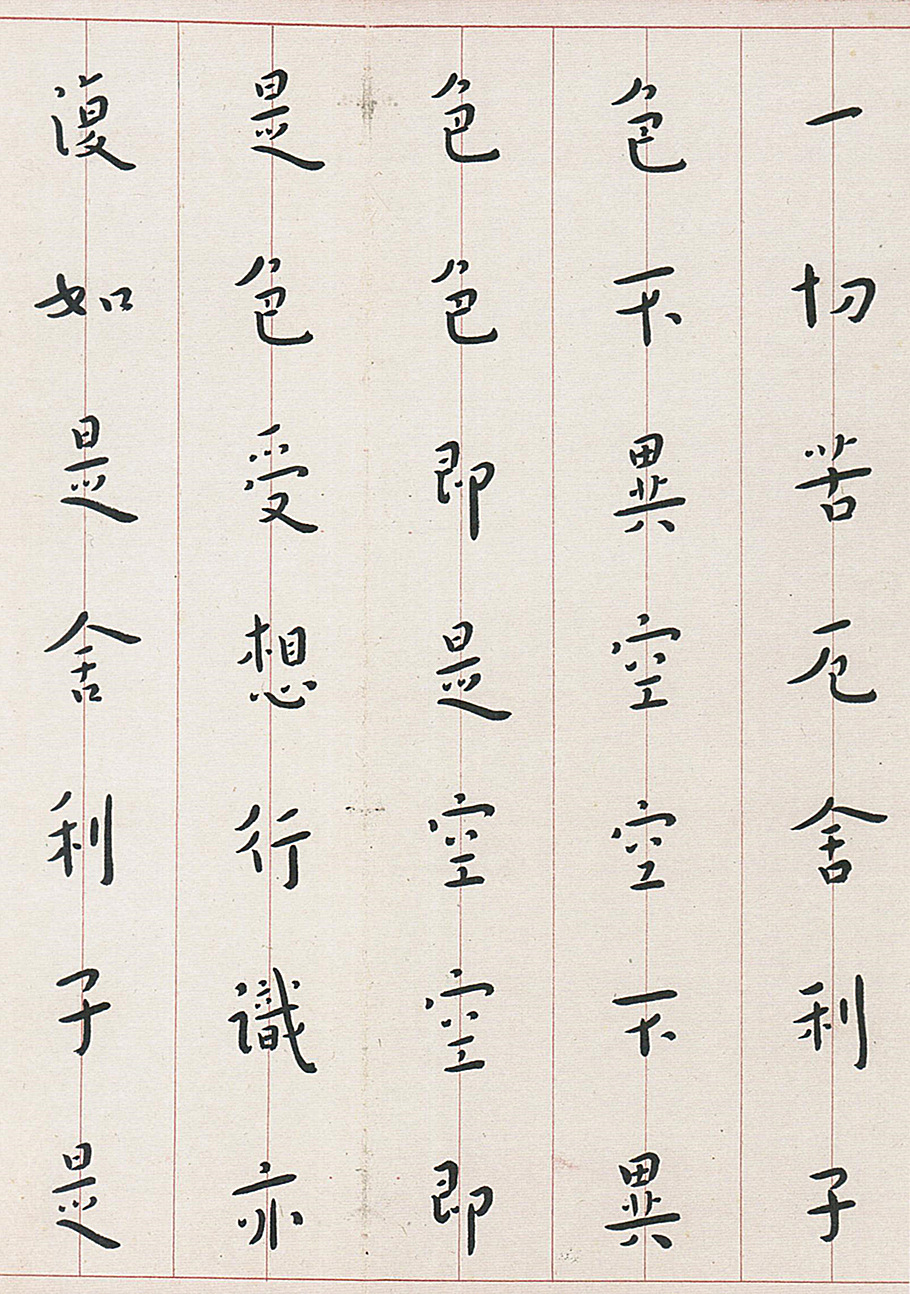 一切苦厄舍利子
色不異空空不異
色色即是空空即
是色受想行識亦
復如是舍利子是